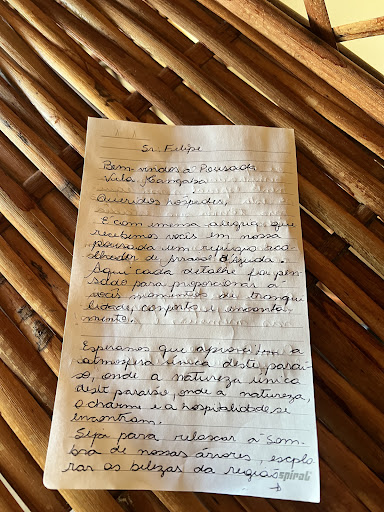 Sr. Felipe
Bem vindos à Pousada
Vila Mangaba.
Queridos hospedes,
É com imensa alegria que
recebemos vocês em nossa
pousada um refúgio aco
lhedor de Jussaral d'Ajuda.
Aqui cada detalhe foi pen
sado para proporcionar a
vocês momentos de tranqu
lidade, conforto e encanta
mento.
Esperamos que aproveitem a
atmosfera única deste paraí
so, onde a natureza única
deste paraíso, onde a natureza,
o charme e a hospitalidade se
encontram.
Seja para relaxar à som
bra de nossas árvores, explo
rar as belezas da região
spiral